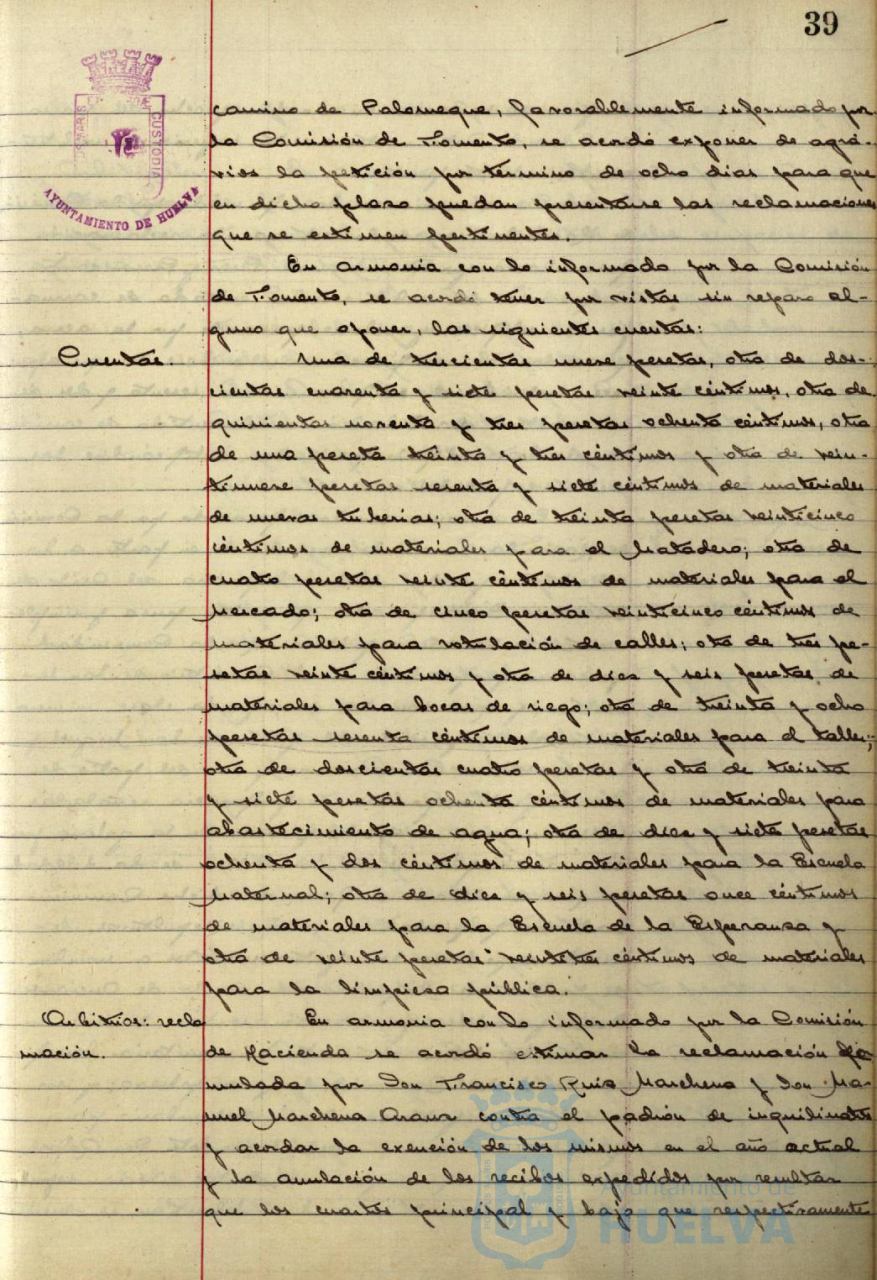 39
PORTUS MARIS
CUSTODIA
AYUNTAMIENTO DE HUELVA
camino de Palomeque, favorablemente informado por
la Comisión de Fomento, se acordó exponer de agra-
vios la petición por término de ocho dias para que
en dicho plazo puedan presentarse las reclamaciones
que se estimen pertinentes.
En armonia con lo informado por la Comisión
de Fomento, se acordó tener por vistas sin reparo al-
guno que oponer, las siguientes cuentas:
Cuentas.
Una de trescientas nueve pesetas, otra de dos-
cientas cuarenta y siete pesetas veinte céntimos, otra de
quinientas noventa y tres pesetas ochenta céntimos, otra
de una peseta treinta y tres céntimos y otra de vein-
tinueve pesetas sesenta y siete céntimos de materiales
de nuevas tuberias; otra de treinta pesetas veinticinco
céntimos de materiales para el Matadero; otra de
cuatro pesetas veinte céntimos de materiales para el
Mercado; otra de cinco pesetas veinticinco céntimos de
materiales para rotulación de calles; otra de tres pe-
setas veinte céntimos y otra de diez y seis pesetas de
materiales para bocas de riego; otra de treinta y ocho
pesetas sesenta céntimos de materiales para el taller;
otra de doscientas cuatro pesetas y otra de treinta
y siete pesetas ochenta céntimos de materiales para
abastecimiento de agua; otra de diez y siete pesetas
ochenta y dos céntimos de materiales para la Escuela
Maternal; otra de diez y seis pesetas once céntimos
de materiales para la Escuela de la Esperanza y
otra de veinte pesetas veintitres céntimos de materiales
para la limpieza pública.
Arbitrios: recla
mación.
En armonia con lo informado por la Comisión
de Hacienda se acordó estimar la reclamación for
mulada por Don Francisco Ruiz Marchena y Don Ma-
nuel Marchena Aranz contra el padrón de inquilinatos
y acordar la exención de los mismos en el año actual
y la anulación de los recibos expedidos por resultar
que los cuartos principal y bajo que respectivamente
Ayuntamiento de
HUELVA